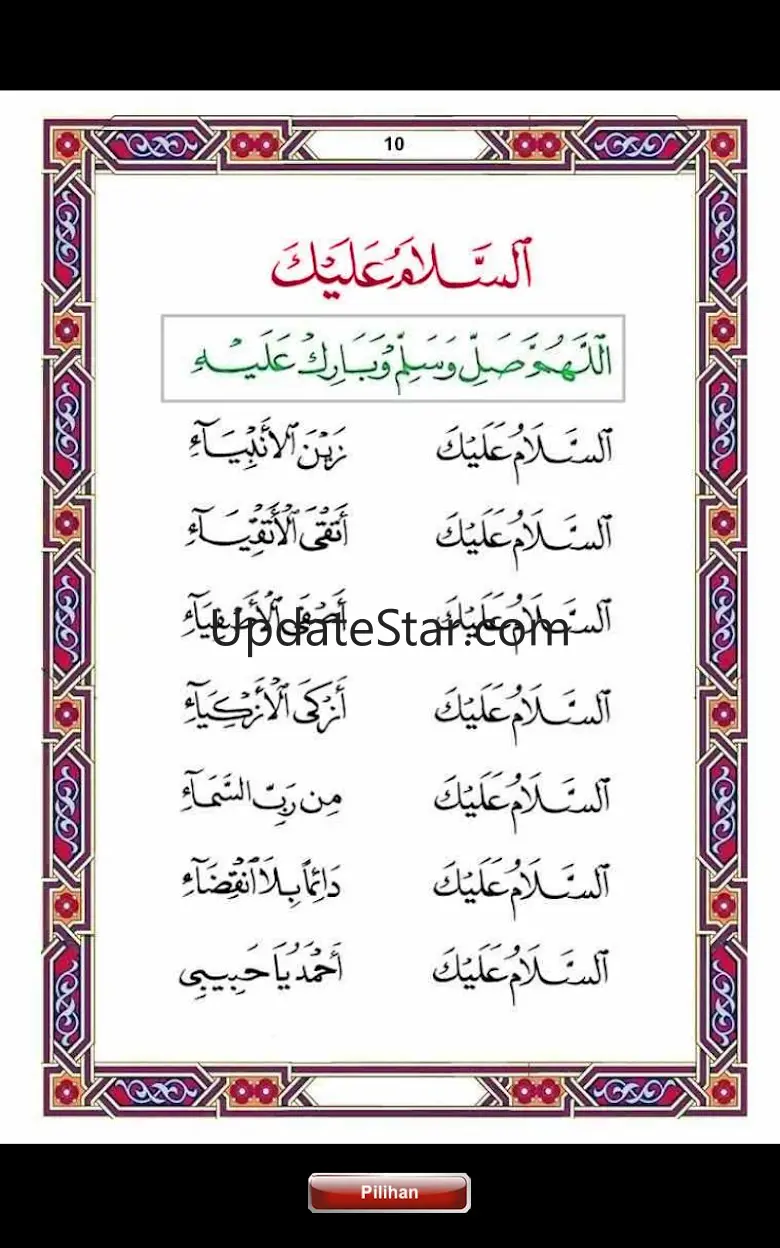 10
اَلسَّلَامُ عَلَيْكَ
اَللَّهُمَّ صَلِّ وَسَلِّمْ وَبَارِكْ عَلَيْهِ
اَلسَّلَامُ عَلَيْكَ زَيْنَ الْأَنْبِيَآءِ
اَلسَّلَامُ عَلَيْكَ أَتْقَى الْأَتْقِيَآءِ
اَلسَّلَامُ عَلَيْكَ أَصْفَى الْأَصْفِيَآءِ
UpdateStar.com
اَلسَّلَامُ عَلَيْكَ أَزْكَى الْأَزْكِيَآءِ
اَلسَّلَامُ عَلَيْكَ مِن رَبِّ السَّمَآءِ
اَلسَّلَامُ عَلَيْكَ دَائِمًا بِلَا انْقِضَآءِ
اَلسَّلَامُ عَلَيْكَ أَحْمَدُ يَا حَبِيبِى
Pilihan